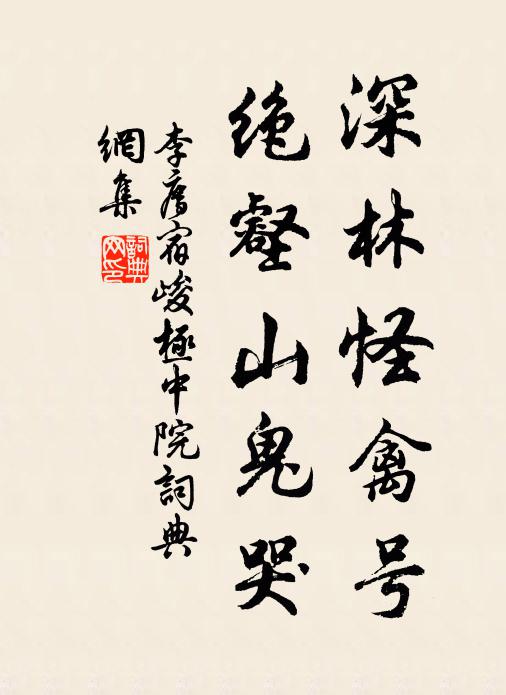 深林怪禽号
绝壑山鬼哭
李廌宿峻極中院詞典
網集
詞典
网印